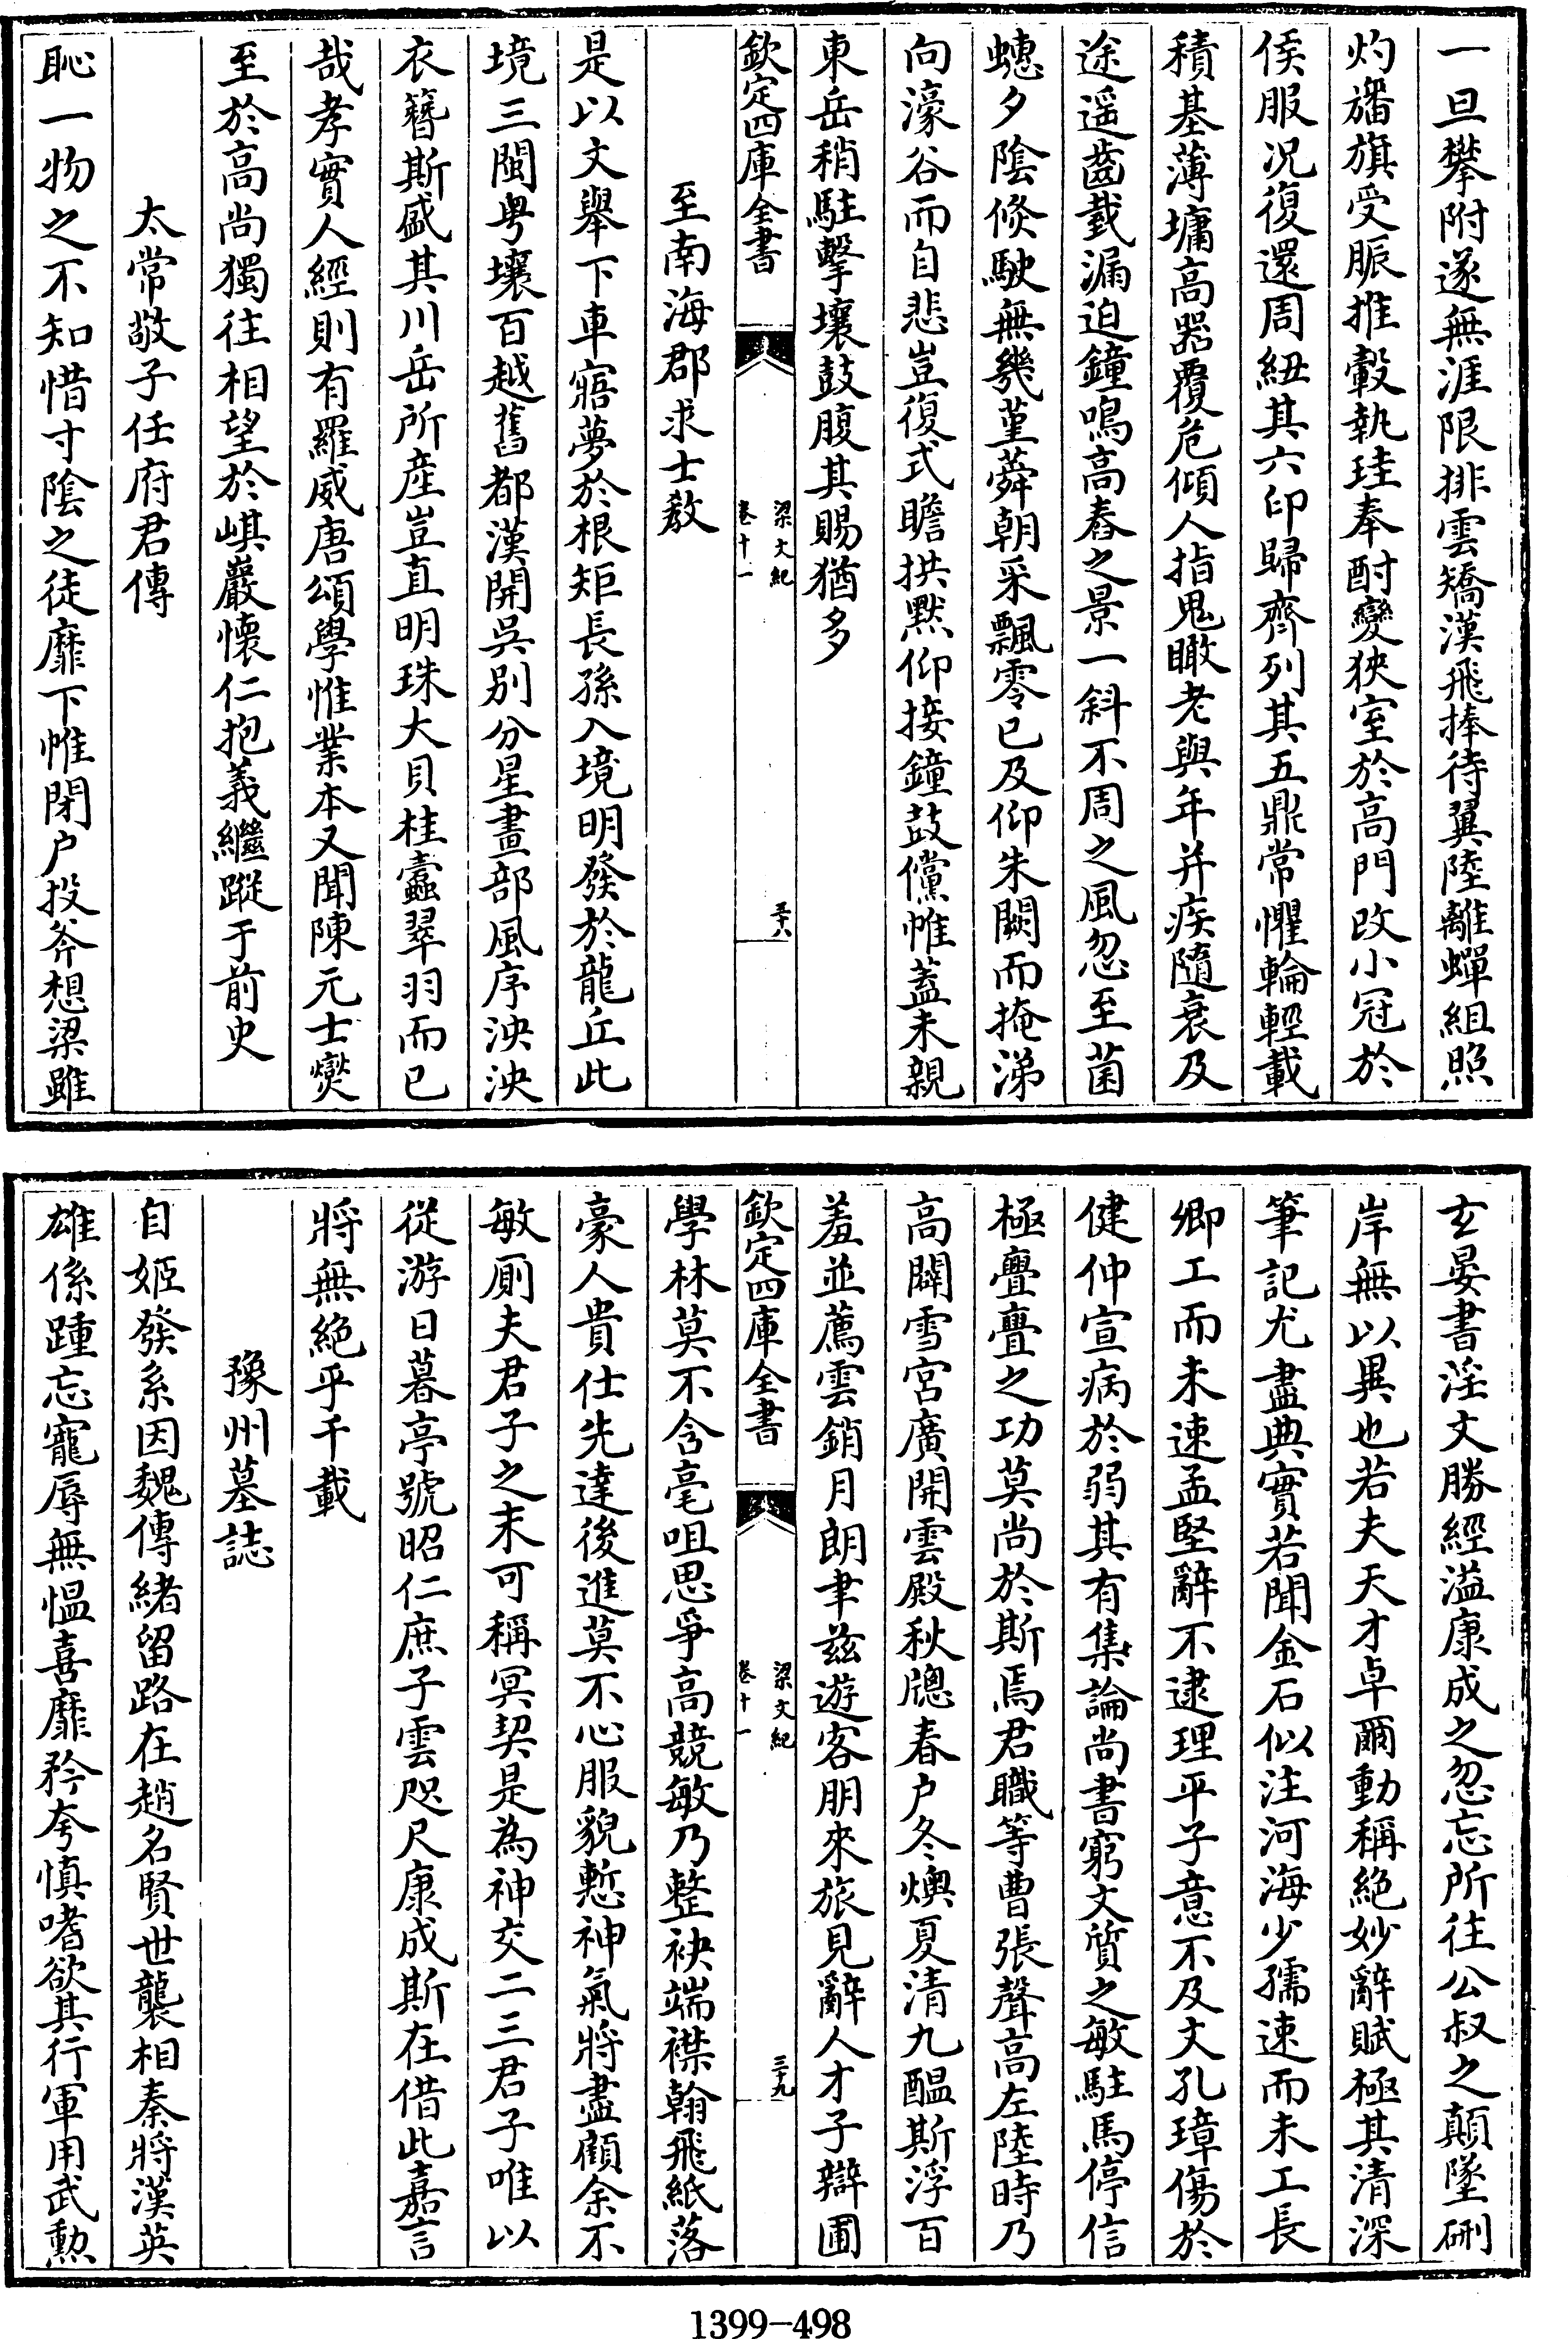 一旦攀附遂無涯限排雲矯漢飛捧待翼陸離蟬組照
灼旛旗受脤推轂執珪奉酎變狹室於高門改小冠於
侯服况復還周紐其六印歸齊列其五鼎常懼輪輕載
積基薄墉高器覆危傾人指鬼瞰老與年并疾隨衰及
途遥齒戴漏迫鐘鳴高舂之景一斜不周之風忽至菌
蟪夕陰倏駛無幾堇蕣朝采飄零已及仰朱闕而掩涕
向濠谷而自悲豈復式瞻拱黙仰接鐘鼓儻帷蓋未親
東岳稍駐擊壤鼓腹其賜猶多
欽定四庫全書 梁文紀 卷十一 三十八
至南海郡求士教
是以文舉下車寤夢於根矩長孫入境明發於龍丘此
境三閩粤壤百越舊都漢開吳别分星畫部風序泱泱
衣簪斯盛其川岳所産豈直明珠大貝桂蠹翠羽而已
哉孝實人經則有羅威唐頌學惟業本又聞陳元士燮
至於高尚獨往相望於嶇巖懷仁抱義繼蹤于前史
太常敬子任府君傳
恥一物之不知惜寸陰之徒靡下帷閉户投斧想梁雖
玄晏書淫文勝經溢康成之忽忘所往公叔之顛墜硎
岸無以異也若夫天才卓爾動稱絶妙辭賦極其清深
筆記尤盡典實若聞金石似注河海少孺速而未工長
卿工而未速孟堅辭不逮理平子意不及文孔璋傷於
健仲宣病於弱其有集論尚書窮文質之敏駐馬停信
極亹亹之功莫尚於斯焉君職等曹張聲高左陸時乃
高闢雪宮廣開雲殿秋牕春户冬燠夏清九醖斯浮百
羞並薦雲銷月朗聿兹遊客朋來旅見辭人才子辯圃
欽定四庫全書 梁文紀 卷十一 三十九
學林莫不含毫咀思爭高競敏乃整袂端襟翰飛紙落
豪人貴仕先達後進莫不心服貌慙神氣將盡顧余不
敏厠夫君子之末可稱冥契是為神交二三君子唯以
從游日暮亭號昭仁庶子雲咫尺康成斯在借此嘉言
將無絶乎千載
豫州墓誌
自姬發系因魏傳緒留路在趙名賢世襲相秦將漢英
雄係踵忘寵辱無愠喜靡矜夸慎嗜欲其行軍用武勲
1399-498